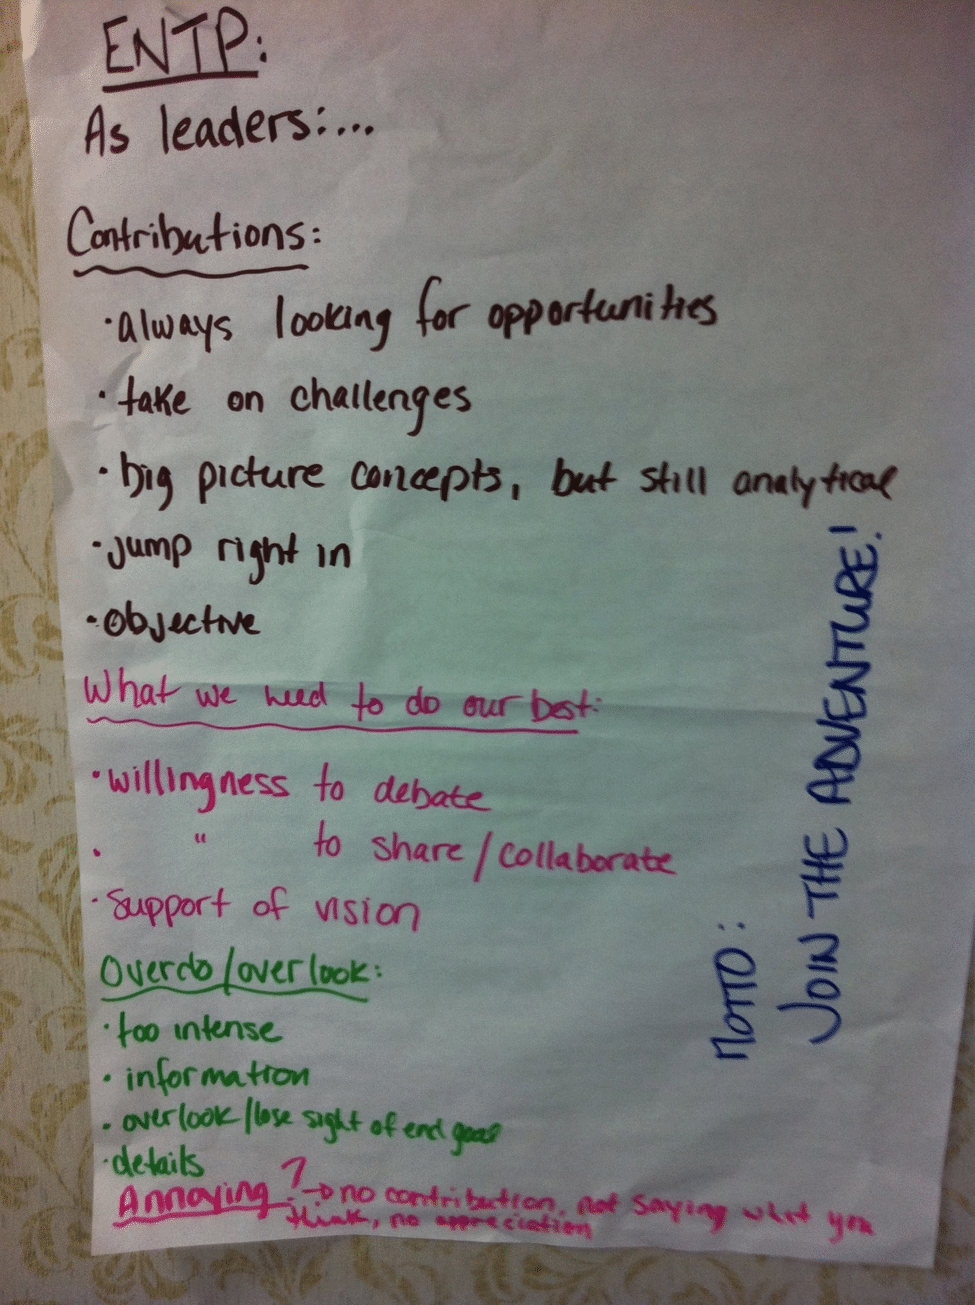 ENTP:
As leaders:...
Contributions:
• always looking for opportunities
• take on challenges
• big picture concepts, but still analytical
• jump right in
• objective
What we need to do our best:
• willingness to debate
• " to share/collaborate
• Support of vision
Overdo/overlook:
• too intense
• information
• overlook/lose sight of end goal
• details
Annoying? → no contribution, not saying what you
think, no appreciation
MOTTO:
JOIN THE ADVENTURE!